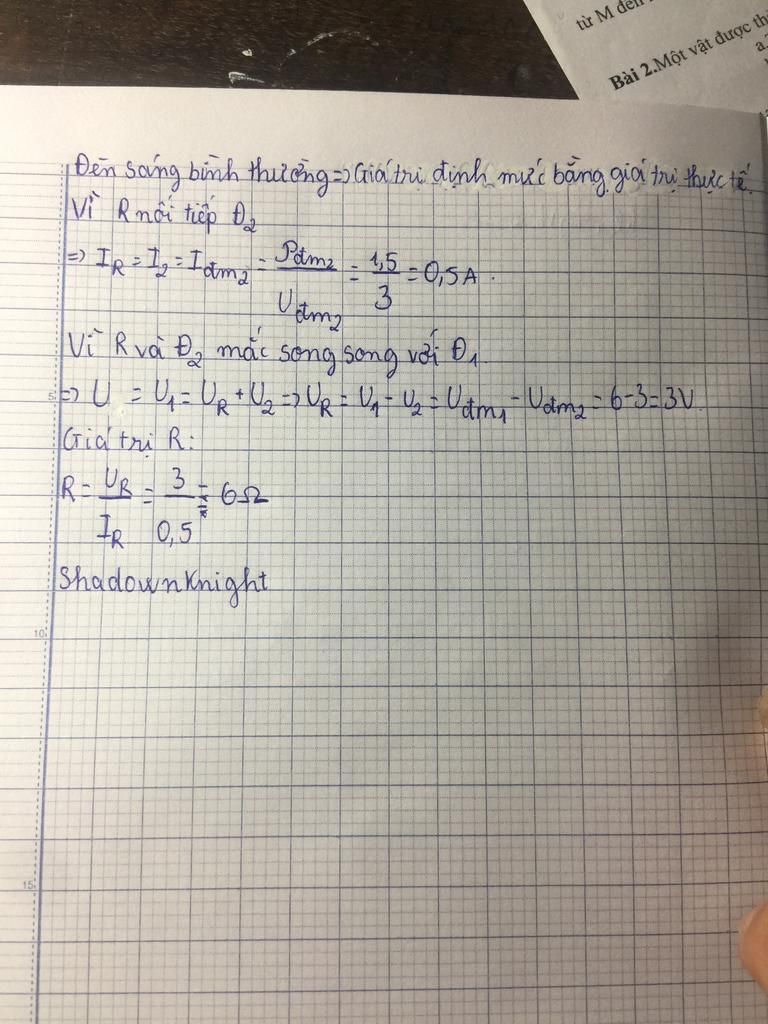 từ M đến
Bài 2.Một vật được th
a.
Đèn sáng bình thường => Giá trị định mức bằng giá trị thực tế.
Vì R nối tiếp Đ2
=> IR = I2 = Iđm2 = Pđm2/Uđm2 = 1,5/3 = 0,5A.
Vì R và Đ2 mắc song song với Đ1.
=> U = U1 = UR + U2 => UR = U1 - U2 = Uđm1 - Uđm2 = 6-3=3V
Giá trị R:
R = UR/IR = 3/0,5 = 6Ω
ShadownKnight
5
10
15